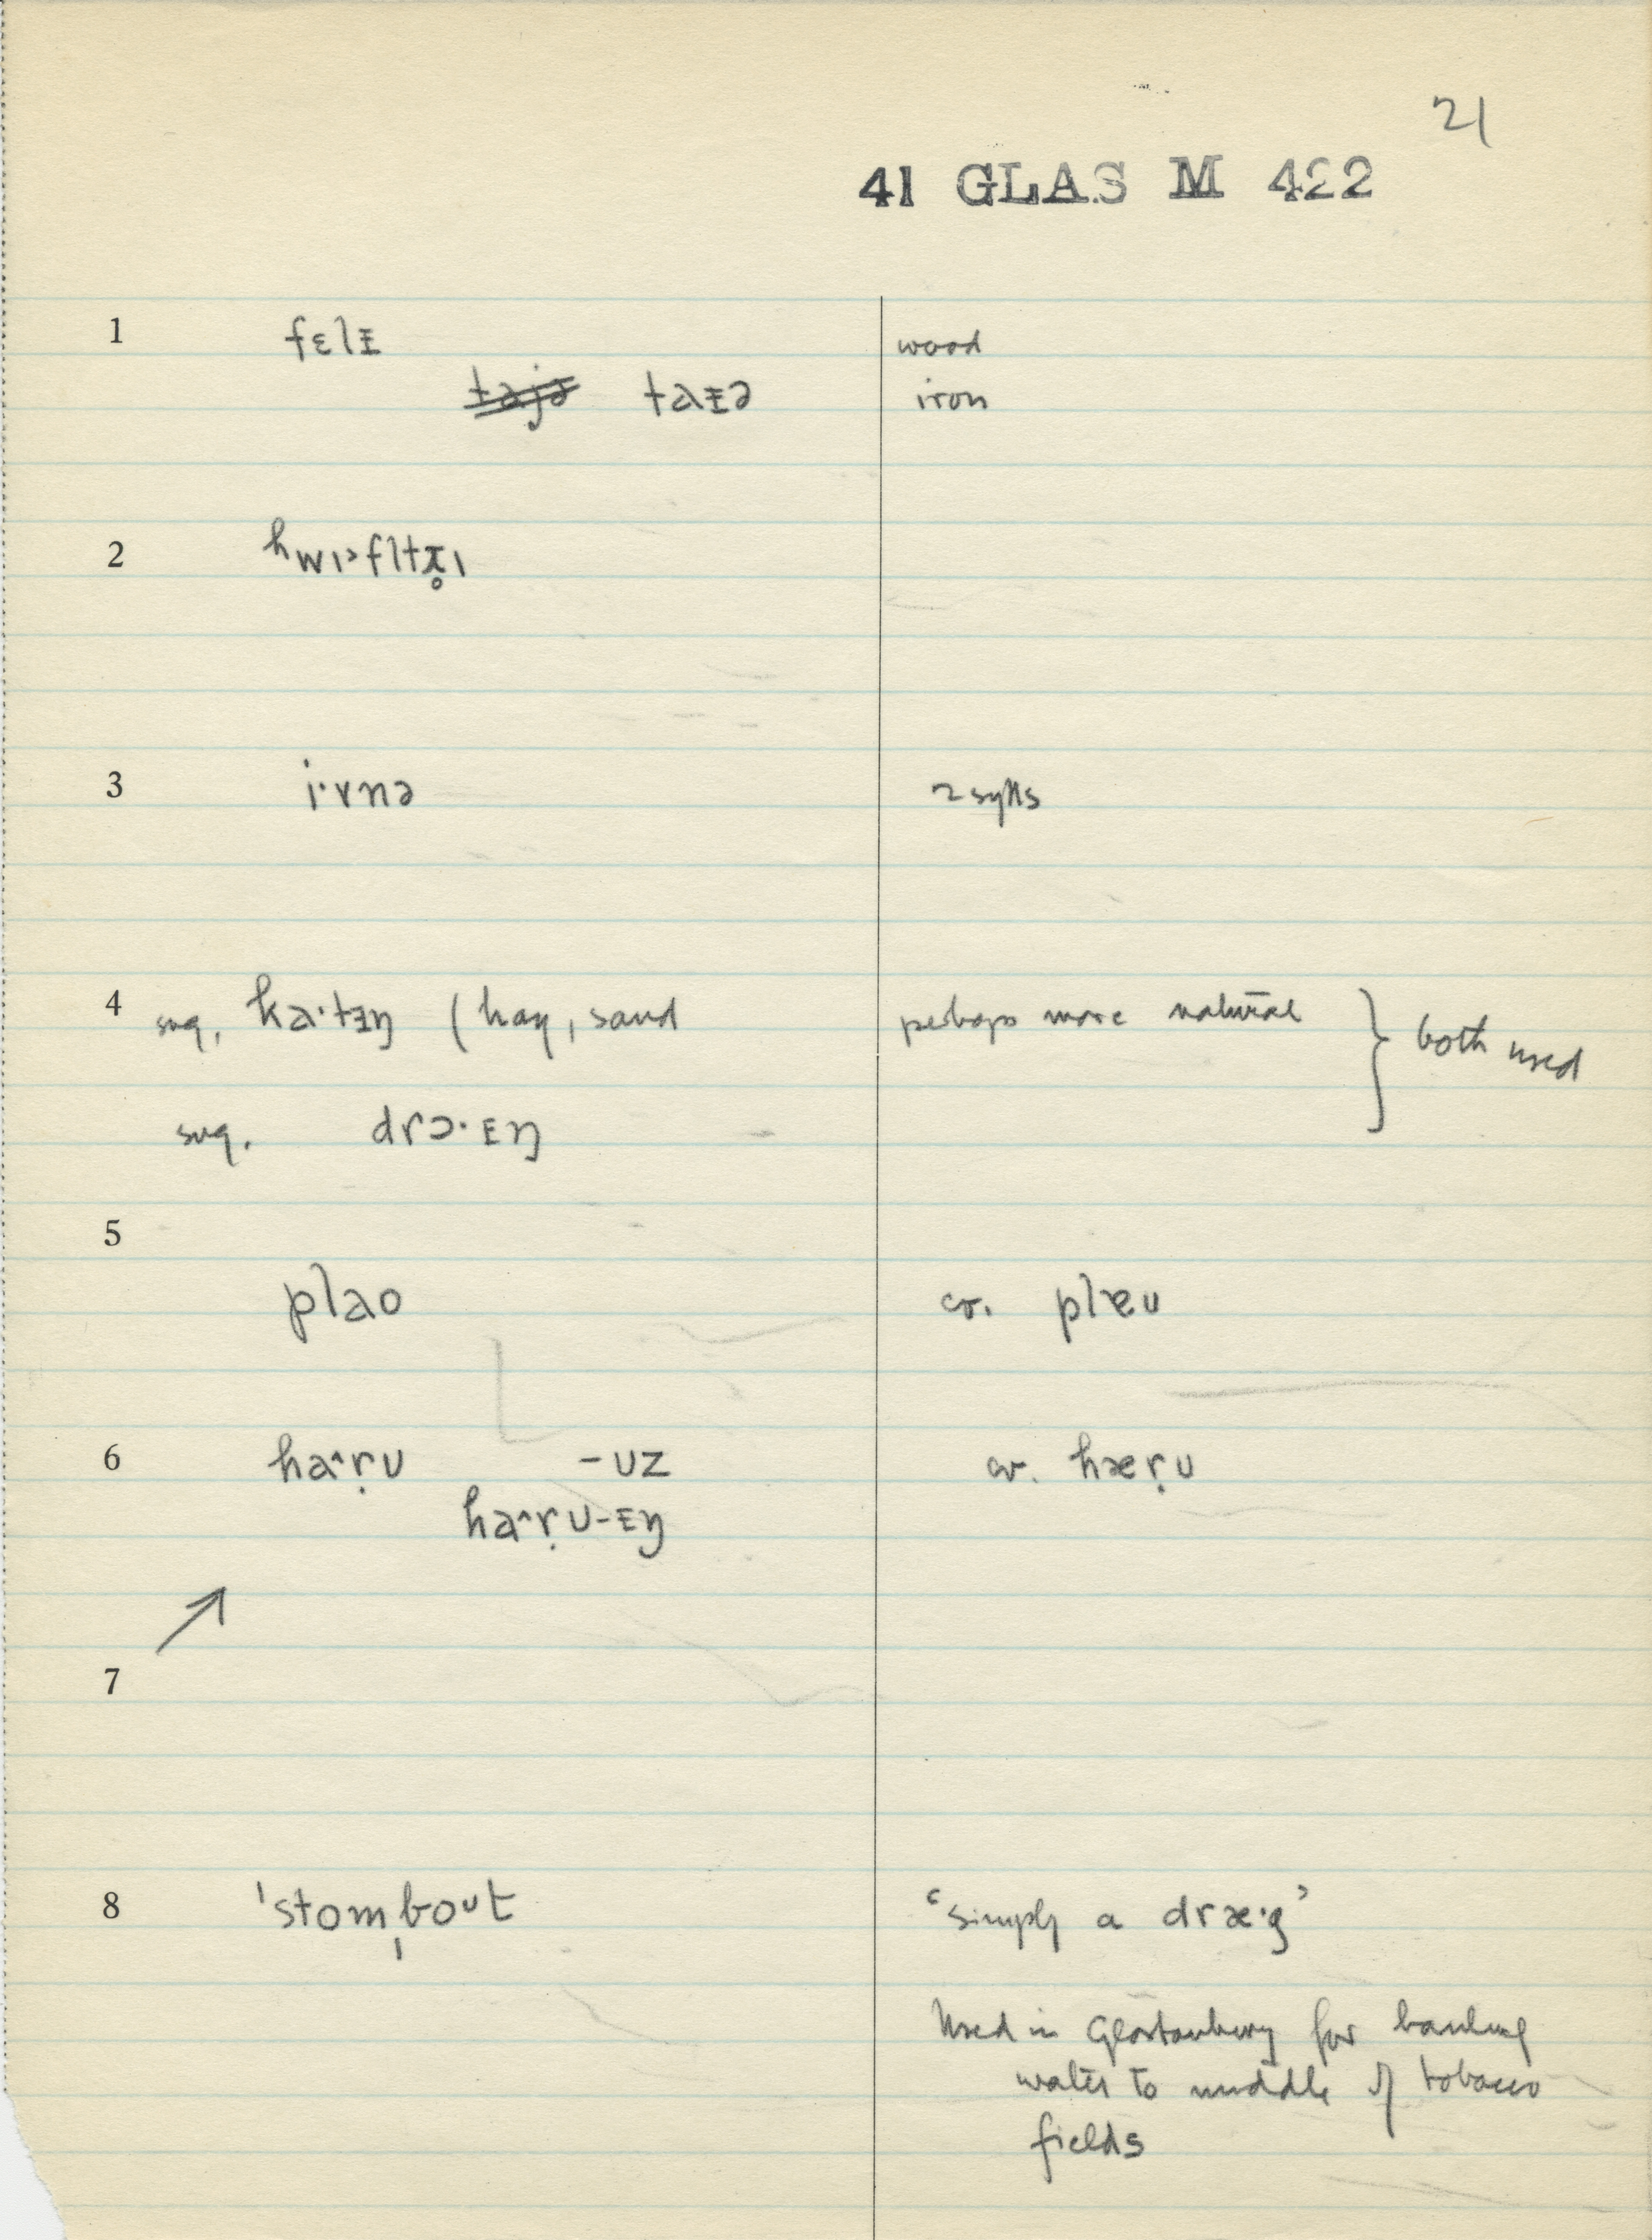 21
41 GLAS M 422
1 fɛlɪ wood
taɪə iron
2 ʰwɪ˃fltr̥ɪ
3 i·vnə 2 sylls
4 sug. ka·tɪŋ (hay, sand perhaps more natural } both used
sug. drɔ·ɪŋ
5
plao cr. plæu
6 haˆṛʊ -ʊz cr. hæṛʊ
haˆṛʊ-ɪŋ
7
8 ˈstomˌboʊt ‘simply a dræ·g’
Used in Glastonbury for hauling
water to middle of tobacco
fields